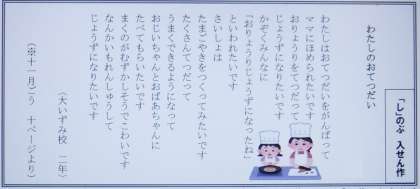 「し」のぶ 入せん作
わたしのおてつだい
わたしはおてつだいをがんばって
ママにほめられたいです
おりょうりをてつだって
じょうずになりたいです
かぞくみんなに
「おりょうりじょうずになったね」
といわれたいです
さいしょは
たまごやきをつくってみたいです
たくさんてつだって
うまくできるようになって
おじいちゃんとおばあちゃんに
たべてもらいたいです
まくのがむずかしそうでこわいです
なんかいもれんしゅうして
じょうずになりたいです
(大いずみ校 二年)
(※十一月ごう 十ページより)